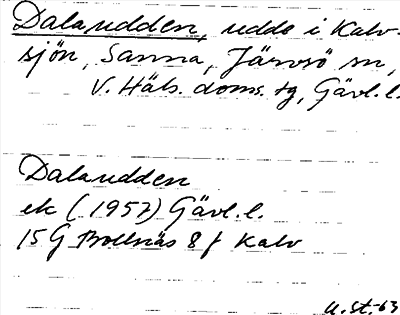 Dalaudden, udde i Kalv-
sjön, Sanna, Järvsö sn,
V. Häls. doms. tg, Gävl. l.
Dalaudden
ek (1957) Gävl. l.
15G Bollnäs 8f Kalv
U. St. -63